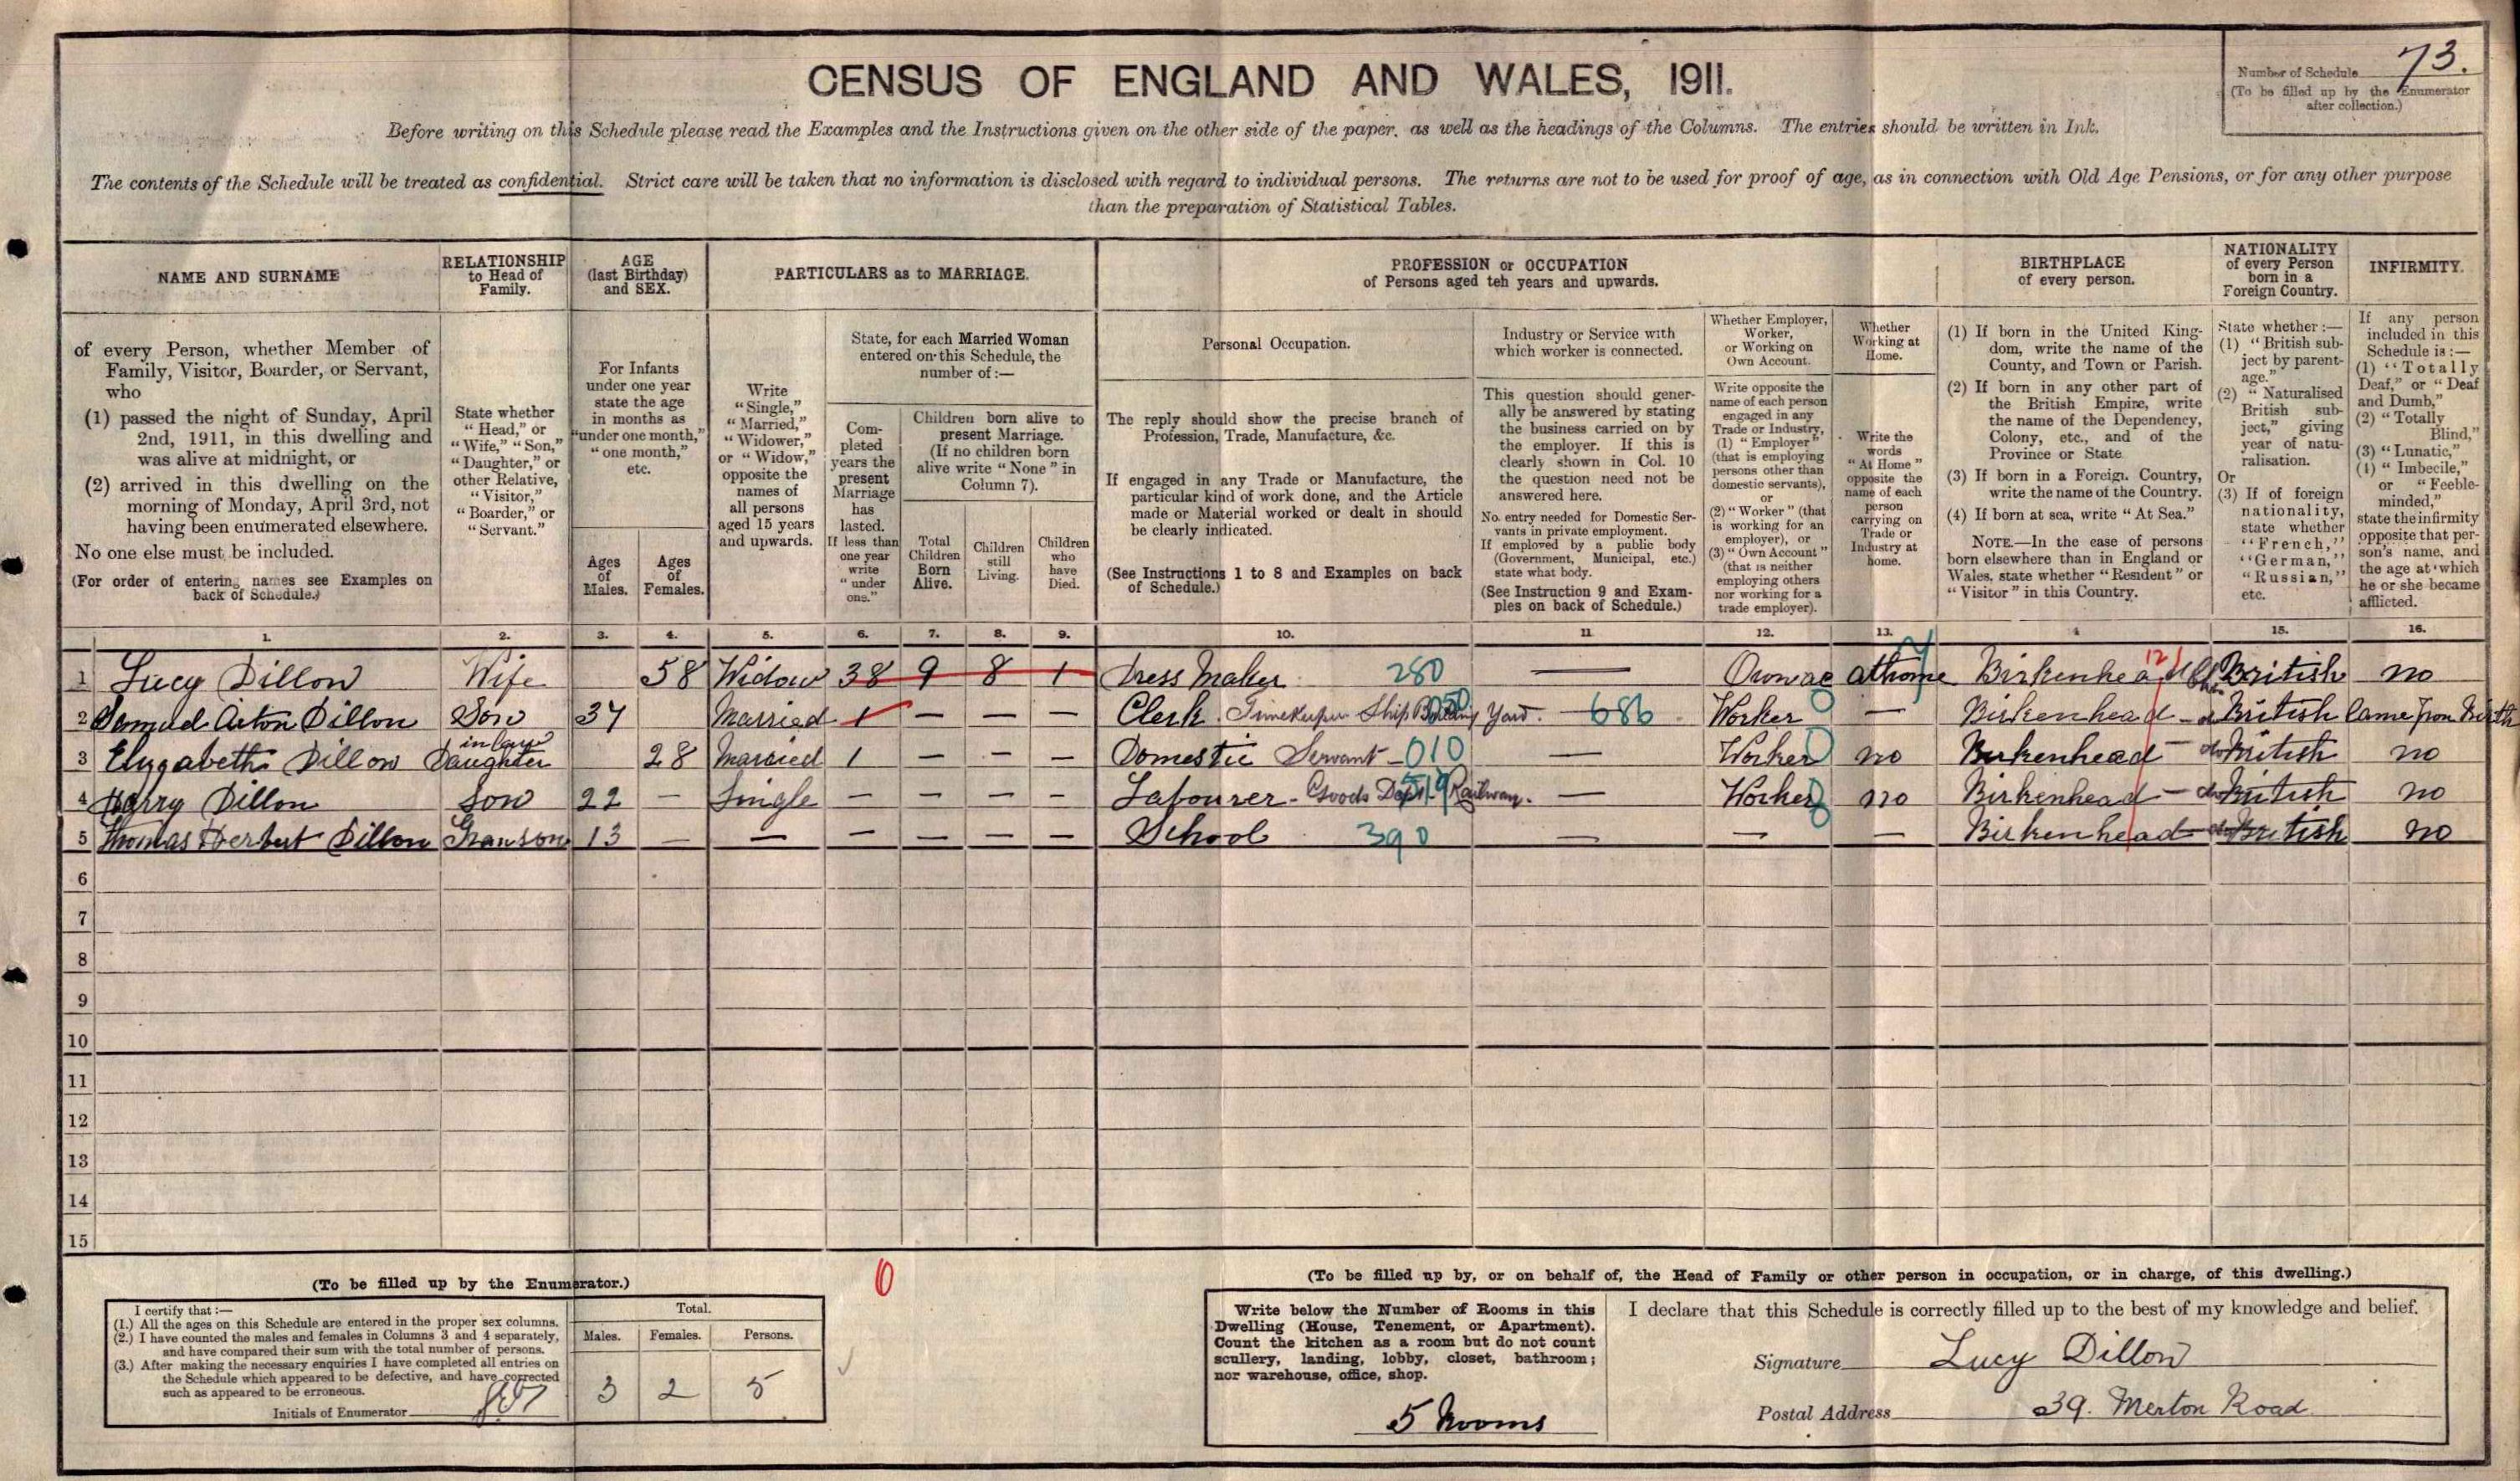 CENSUS OF ENGLAND AND WALES, 1911.
Number of Schedule 73.
(To be filled up by the Enumerator
after collection.)
Before writing on this Schedule please read the Examples and the Instructions given on the other side of the paper, as well as the headings of the Columns. The entries should be written in Ink.
The contents of the Schedule will be treated as confidential. Strict care will be taken that no information is disclosed with regard to individual persons. The returns are not to be used for proof of age, as in connection with Old Age Pensions, or for any other purpose
than the preparation of Statistical Tables.
NAME AND SURNAME
RELATIONSHIP
to Head of
Family.
AGE
(last Birthday)
and SEX.
PARTICULARS as to MARRIAGE.
PROFESSION or OCCUPATION
of Persons aged teh years and upwards.
BIRTHPLACE
of every person.
NATIONALITY
of every Person
born in a
Foreign Country.
INFIRMITY.
of every Person, whether Member of
Family, Visitor, Boarder, or Servant,
who
(1) passed the night of Sunday, April
2nd, 1911, in this dwelling and
was alive at midnight, or
(2) arrived in this dwelling on the
morning of Monday, April 3rd, not
having been enumerated elsewhere.
No one else must be included.
(For order of entering names see Examples on
back of Schedule.)
State whether
"Head," or
"Wife," "Son,"
"Daughter," or
other Relative,
"Visitor,"
"Boarder," or
"Servant."
For Infants
under one year
state the age
in months as
"under one month,"
"one month,"
etc.
Ages
of
Males.
Ages
of
Females.
Write
"Single,"
"Married,"
"Widower,"
or "Widow,"
opposite the
names of
all persons
aged 15 years
and upwards.
State, for each Married Woman
entered on this Schedule, the
number of:—
Com-
pleted
years the
present
Marriage
has
lasted.
If less than
one year
write
"under
one."
Children born alive to
present Marriage.
(If no children born
alive write "None" in
Column 7).
Total
Children
Born
Alive.
Children
still
Living.
Children
who
have
Died.
Personal Occupation.
The reply should show the precise branch of
Profession, Trade, Manufacture, &c.
If engaged in any Trade or Manufacture, the
particular kind of work done, and the Article
made or Material worked or dealt in should
be clearly indicated.
(See Instructions 1 to 8 and Examples on back
of Schedule.)
Industry or Service with
which worker is connected.
This question should gener-
ally be answered by stating
the business carried on by
the employer. If this is
clearly shown in Col. 10
the question need not be
answered here.
No entry needed for Domestic Ser-
vants in private employment.
If employed by a public body
(Government, Municipal, etc.)
state what body.
(See Instruction 9 and Exam-
ples on back of Schedule.)
Whether Employer,
Worker,
or Working on
Own Account.
Write opposite the
name of each person
engaged in any
Trade or Industry,
(1) "Employer"
(that is employing
persons other than
domestic servants),
or
(2) "Worker" (that
is working for an
employer), or
(3) "Own Account"
(that is neither
employing others
nor working for a
trade employer).
Whether
Working at
Home.
Write the
words
"At Home"
opposite the
name of each
person
carrying on
Trade or
Industry at
home.
(1) If born in the United King-
dom, write the name of the
County, and Town or Parish.
(2) If born in any other part of
the British Empire, write
the name of the Dependency,
Colony, etc., and of the
Province or State.
(3) If born in a Foreign Country,
write the name of the Country.
(4) If born at sea, write "At Sea."
NOTE.—In the case of persons
born elsewhere than in England or
Wales, state whether "Resident" or
"Visitor" in this Country.
State whether:—
(1) "British sub-
ject by parent-
age."
(2) "Naturalised
British sub-
ject," giving
year of natu-
ralisation.
Or
(3) If of foreign
nationality,
state whether
"French,"
"German,"
"Russian,"
etc.
If any person
included in this
Schedule is:—
(1) "Totally
Deaf," or "Deaf
and Dumb,"
(2) "Totally
Blind,"
(3) "Lunatic,"
(4) "Imbecile,"
or "Feeble-
minded,"
state the infirmity
opposite that per-
son's name, and
the age at which
he or she became
afflicted.
1. 2. 3. 4. 5. 6. 7. 8. 9. 10. 11 12. 13. 4 15. 16.
1 Lucy Dillon Wife 58 Widow 38 9 8 1 Dress Maker 280 — Own ac at home Birkenhead British no
2 Samuel Acton Dillon Son 37 Married 1 — — — Clerk Timekeeper Ship Building Yard. — 686 Worker — Birkenhead British Lame from Birth
3 Elyzabeth Dillon in law Daughter 28 Married 1 — — — Domestic Servant — 010 — Worker no Birkenhead — do British no
4 Harry Dillon Son 22 — Single — — — — Labourer - Goods Dept. Railway. — Worker no Birkenhead — do British no
5 Thomas Herbert Dillon Granson 13 — — — — — — School 390 — — — Birkenhead British no
6
7
8
9
10
11
12
13
14
15
(To be filled up by the Enumerator.)
I certify that:—
(1.) All the ages on this Schedule are entered in the proper sex columns.
(2.) I have counted the males and females in Columns 3 and 4 separately,
and have compared their sum with the total number of persons.
(3.) After making the necessary enquiries I have completed all entries on
the Schedule which appeared to be defective, and have corrected
such as appeared to be erroneous.
Initials of Enumerator
Total.
Males. Females. Persons.
3 2 5
0
(To be filled up by, or on behalf of, the Head of Family or other person in occupation, or in charge, of this dwelling.)
Write below the Number of Rooms in this
Dwelling (House, Tenement, or Apartment).
Count the kitchen as a room but do not count
scullery, landing, lobby, closet, bathroom;
nor warehouse, office, shop.
5 Rooms
I declare that this Schedule is correctly filled up to the best of my knowledge and belief.
Signature Lucy Dillon
Postal Address 39. Merton Road